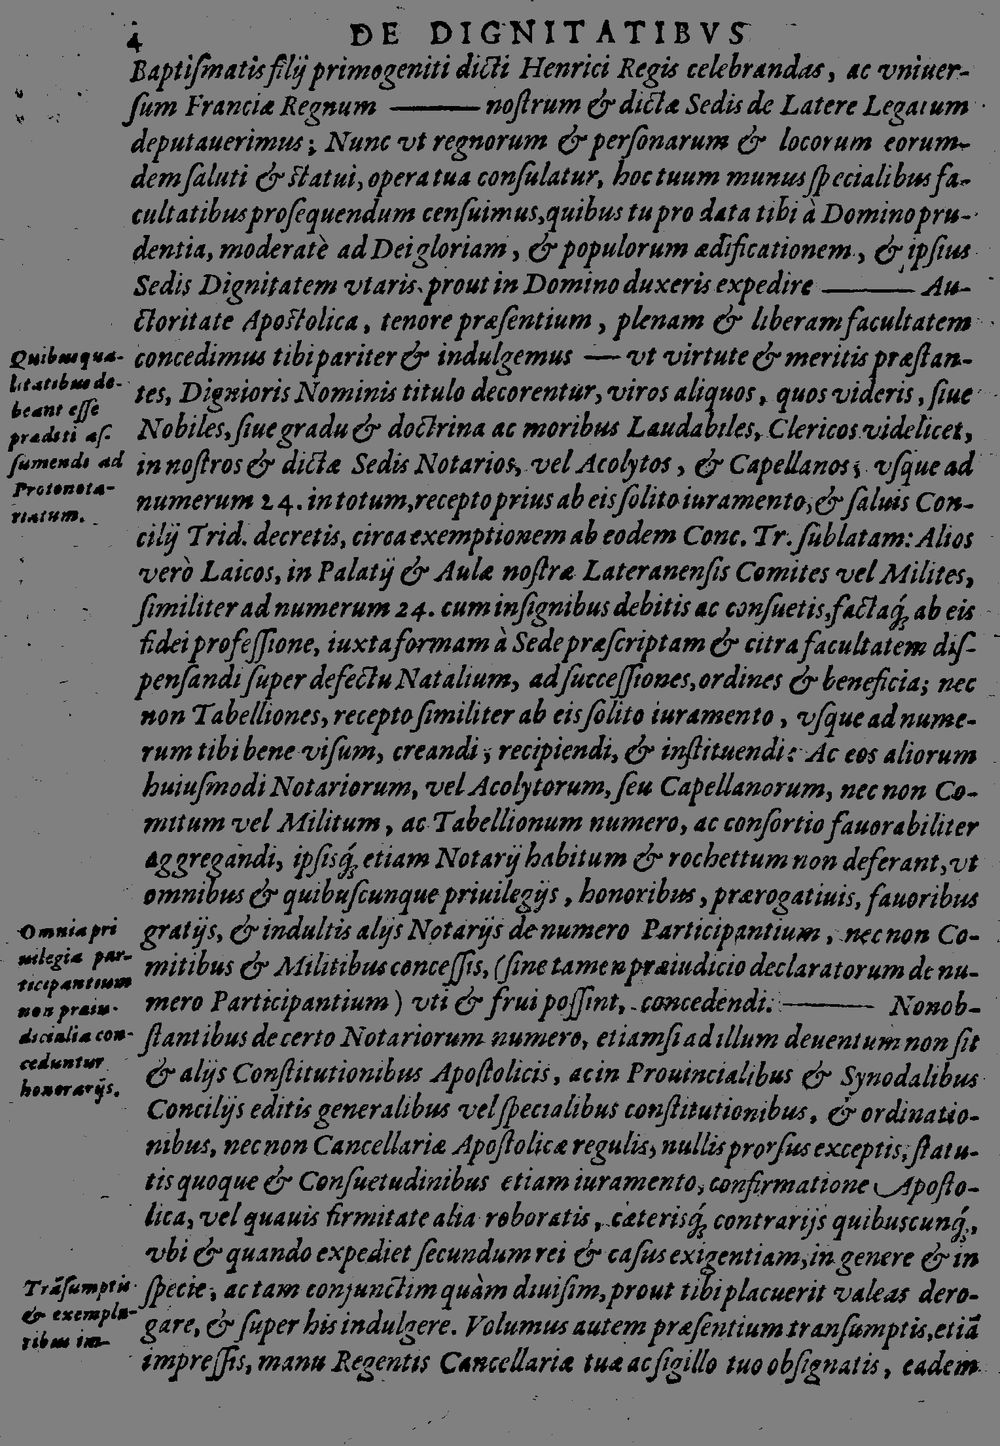 4
DE DIGNITATIBVS
Baptiſmatis filij primogeniti dicti Henrici Regis celebrandas, ac vniuer-
ſum Franciæ Regnum ——— noſtrum & dictæ Sedis de Latere Legatum
deputauerimus; Nunc vt regnorum & perſonarum & locorum eorum-
dem ſaluti & ſtatui, opera tua conſulatur, hoc tuum munus ſpecialibus fa-
cultatibus proſequendum cenſuimus, quibus tu pro data tibi à Domino pru-
dentia, moderatè ad Dei gloriam, & populorum ædificationem, & ipſius
Sedis Dignitatem vtaris. prout in Domino duxeris expedire ——— Au-
ctoritate Apoſtolica, tenore præſentium, plenam & liberam facultatem
concedimus tibi pariter & indulgemus — vt virtute & meritis præſtan-
tes, Dignioris Nominis titulo decorentur, viros aliquos, quos videris, ſiue
Nobiles, ſiue gradu & doctrina ac moribus Laudabiles, Clericos videlicet,
in noſtros & dictæ Sedis Notarios, vel Acolytos, & Capellanos; vſque ad
numerum 24. in totum, recepto prius ab eis ſolito iuramento, & ſaluis Con-
cilij Trid. decretis, circa exemptionem ab eodem Conc. Tr. ſublatam: Alios
verò Laicos, in Palatij & Aulæ noſtræ Lateranenſis Comites vel Milites,
ſimiliter ad numerum 24. cum inſignibus debitis ac conſuetis, factaq́; ab eis
fidei profeſſione, iuxta formam à Sede præſcriptam & citra facultatem diſ-
penſandi ſuper defectu Natalium, ad ſucceſſiones, ordines & beneficia; nec
non Tabelliones, recepto ſimiliter ab eis ſolito iuramento, vſque ad nume-
rum tibi bene viſum, creandi, recipiendi, & inſtituendi: Ac eos aliorum
huiuſmodi Notariorum, vel Acolytorum, ſeu Capellanorum, nec non Co-
mitum vel Militum, ac Tabellionum numero, ac conſortio fauorabiliter
aggregandi, ipſisq́; etiam Notarij habitum & rochettum non deferant, vt
omnibus & quibuſcunque priuilegijs, honoribus, prærogatiuis, fauoribus
gratijs, & indultis alijs Notarijs de numero Participantium, nec non Co-
mitibus & Militibus conceſſis, (ſine tamen præiudicio declaratorum de nu-
mero Participantium) vti & frui poſſint, concedendi. ——— Nonob-
ſtantibus de certo Notariorum numero, etiamſi ad illum deuentum non ſit
& alijs Conſtitutionibus Apoſtolicis, ac in Prouincialibus & Synodalibus
Concilijs editis generalibus vel ſpecialibus conſtitutionibus, & ordinatio-
nibus, nec non Cancellariæ Apoſtolicæ regulis, nullis prorſus exceptis, ſtatu-
tis quoque & Conſuetudinibus etiam iuramento, confirmatione Apoſto-
lica, vel quauis firmitate alia roboratis, cæterisq́; contrarijs quibuscunq́;,
vbi & quando expediet ſecundum rei & caſus exigentiam, in genere & in
ſpecie; ac tam conjunctim quàm diuiſim, prout tibi placuerit valeas dero-
gare, & ſuper his indulgere. Volumus autem præſentium tranſumptis, etiã
impreſſis, manu Regentis Cancellariæ tuæ ac ſigillo tuo obſignatis, eadem
Quibus qua-
litatibus de-
beant eſſe
præditi aſ-
ſumendi ad
Protonota-
riatum.
Omnia pri
uilegia par-
ticipantium
non præiu-
dicialia con-
ceduntur
honorarijs.
Trãſumptis
& exempla-
ribus im-